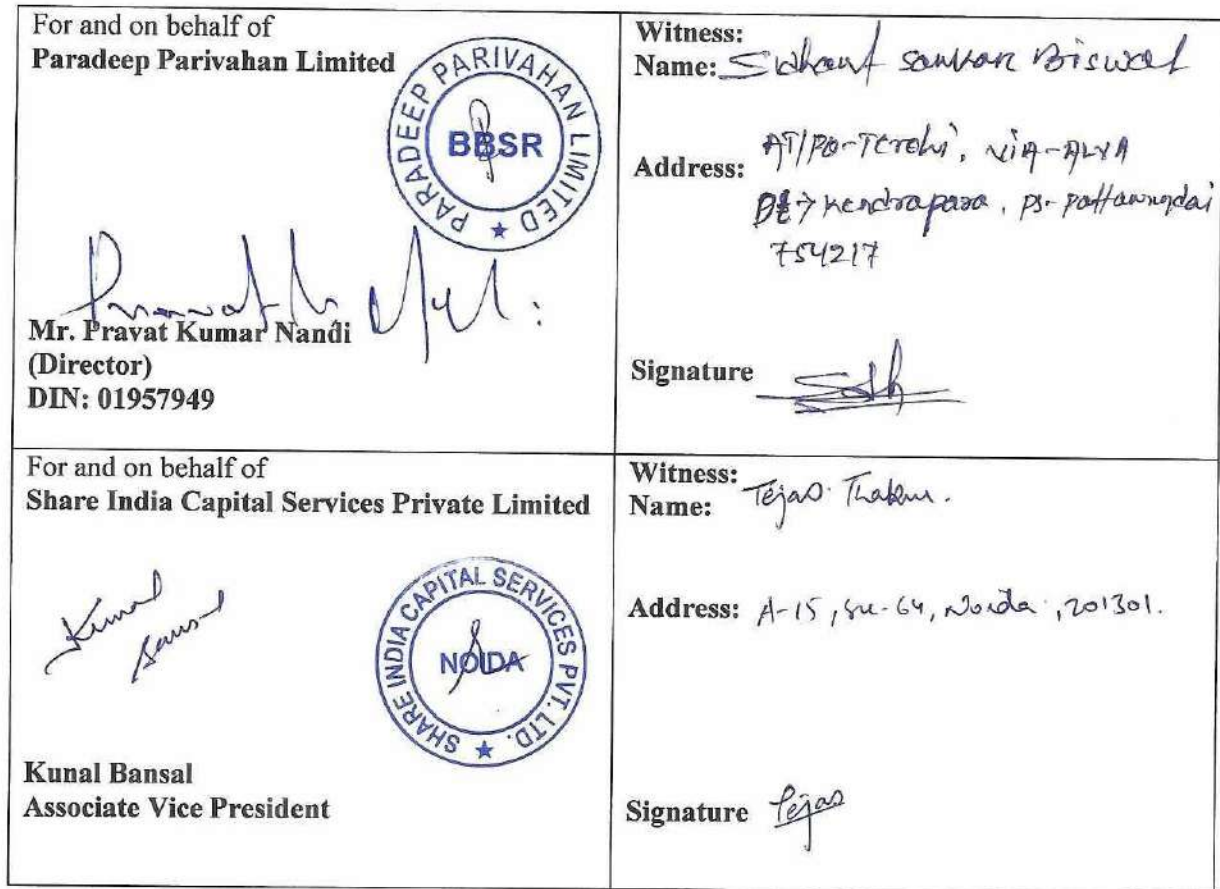 For and on behalf of
Paradeep Parivahan Limited
PARADEEP PARIVAHAN LIMITED
BBSR
Mr. Pravat Kumar Nandi
(Director)
DIN: 01957949
Witness:
Name: Sidhant Sankar Biswal
Address: AT/PO-Terohi, VIA-ALVA
kendrapara, PS-
754217
Signature
For and on behalf of
Share India Capital Services Private Limited
Kunal Bansal
SHARE INDIA CAPITAL SERVICES PVT. LTD.
NOIDA
Kunal Bansal
Associate Vice President
Witness:
Name: Tejas Thakur.
Address: A-15, Sec-64, Noida, 201301.
Signature Tejas